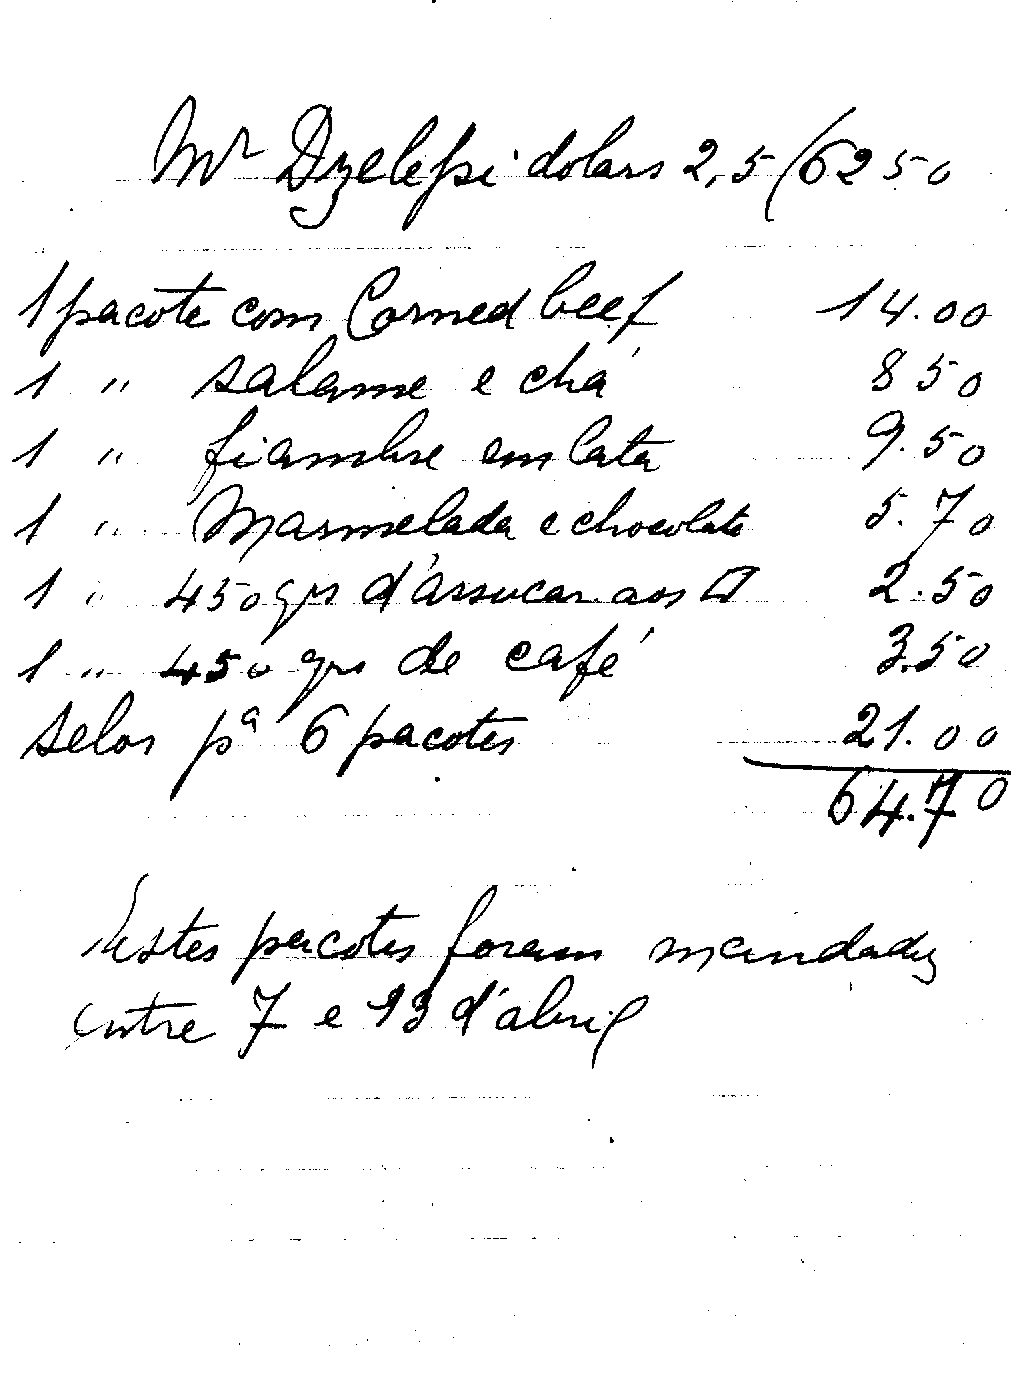 Mr Dzelepi dolars 2,5 (62 50
1 pacote com Corned beef 14.00
1 " salame e chá 8 50
1 " fiambre em lata 9.50
1 " Marmelada e chocolate 5.70
1 " 450 grs d'assucar aos □ 2.50
1 " 450 grs de café 3.50
selos pª 6 pacotes 21.00
64.70
Estes pacotes foram mandados
entre 7 e 13 d'abril